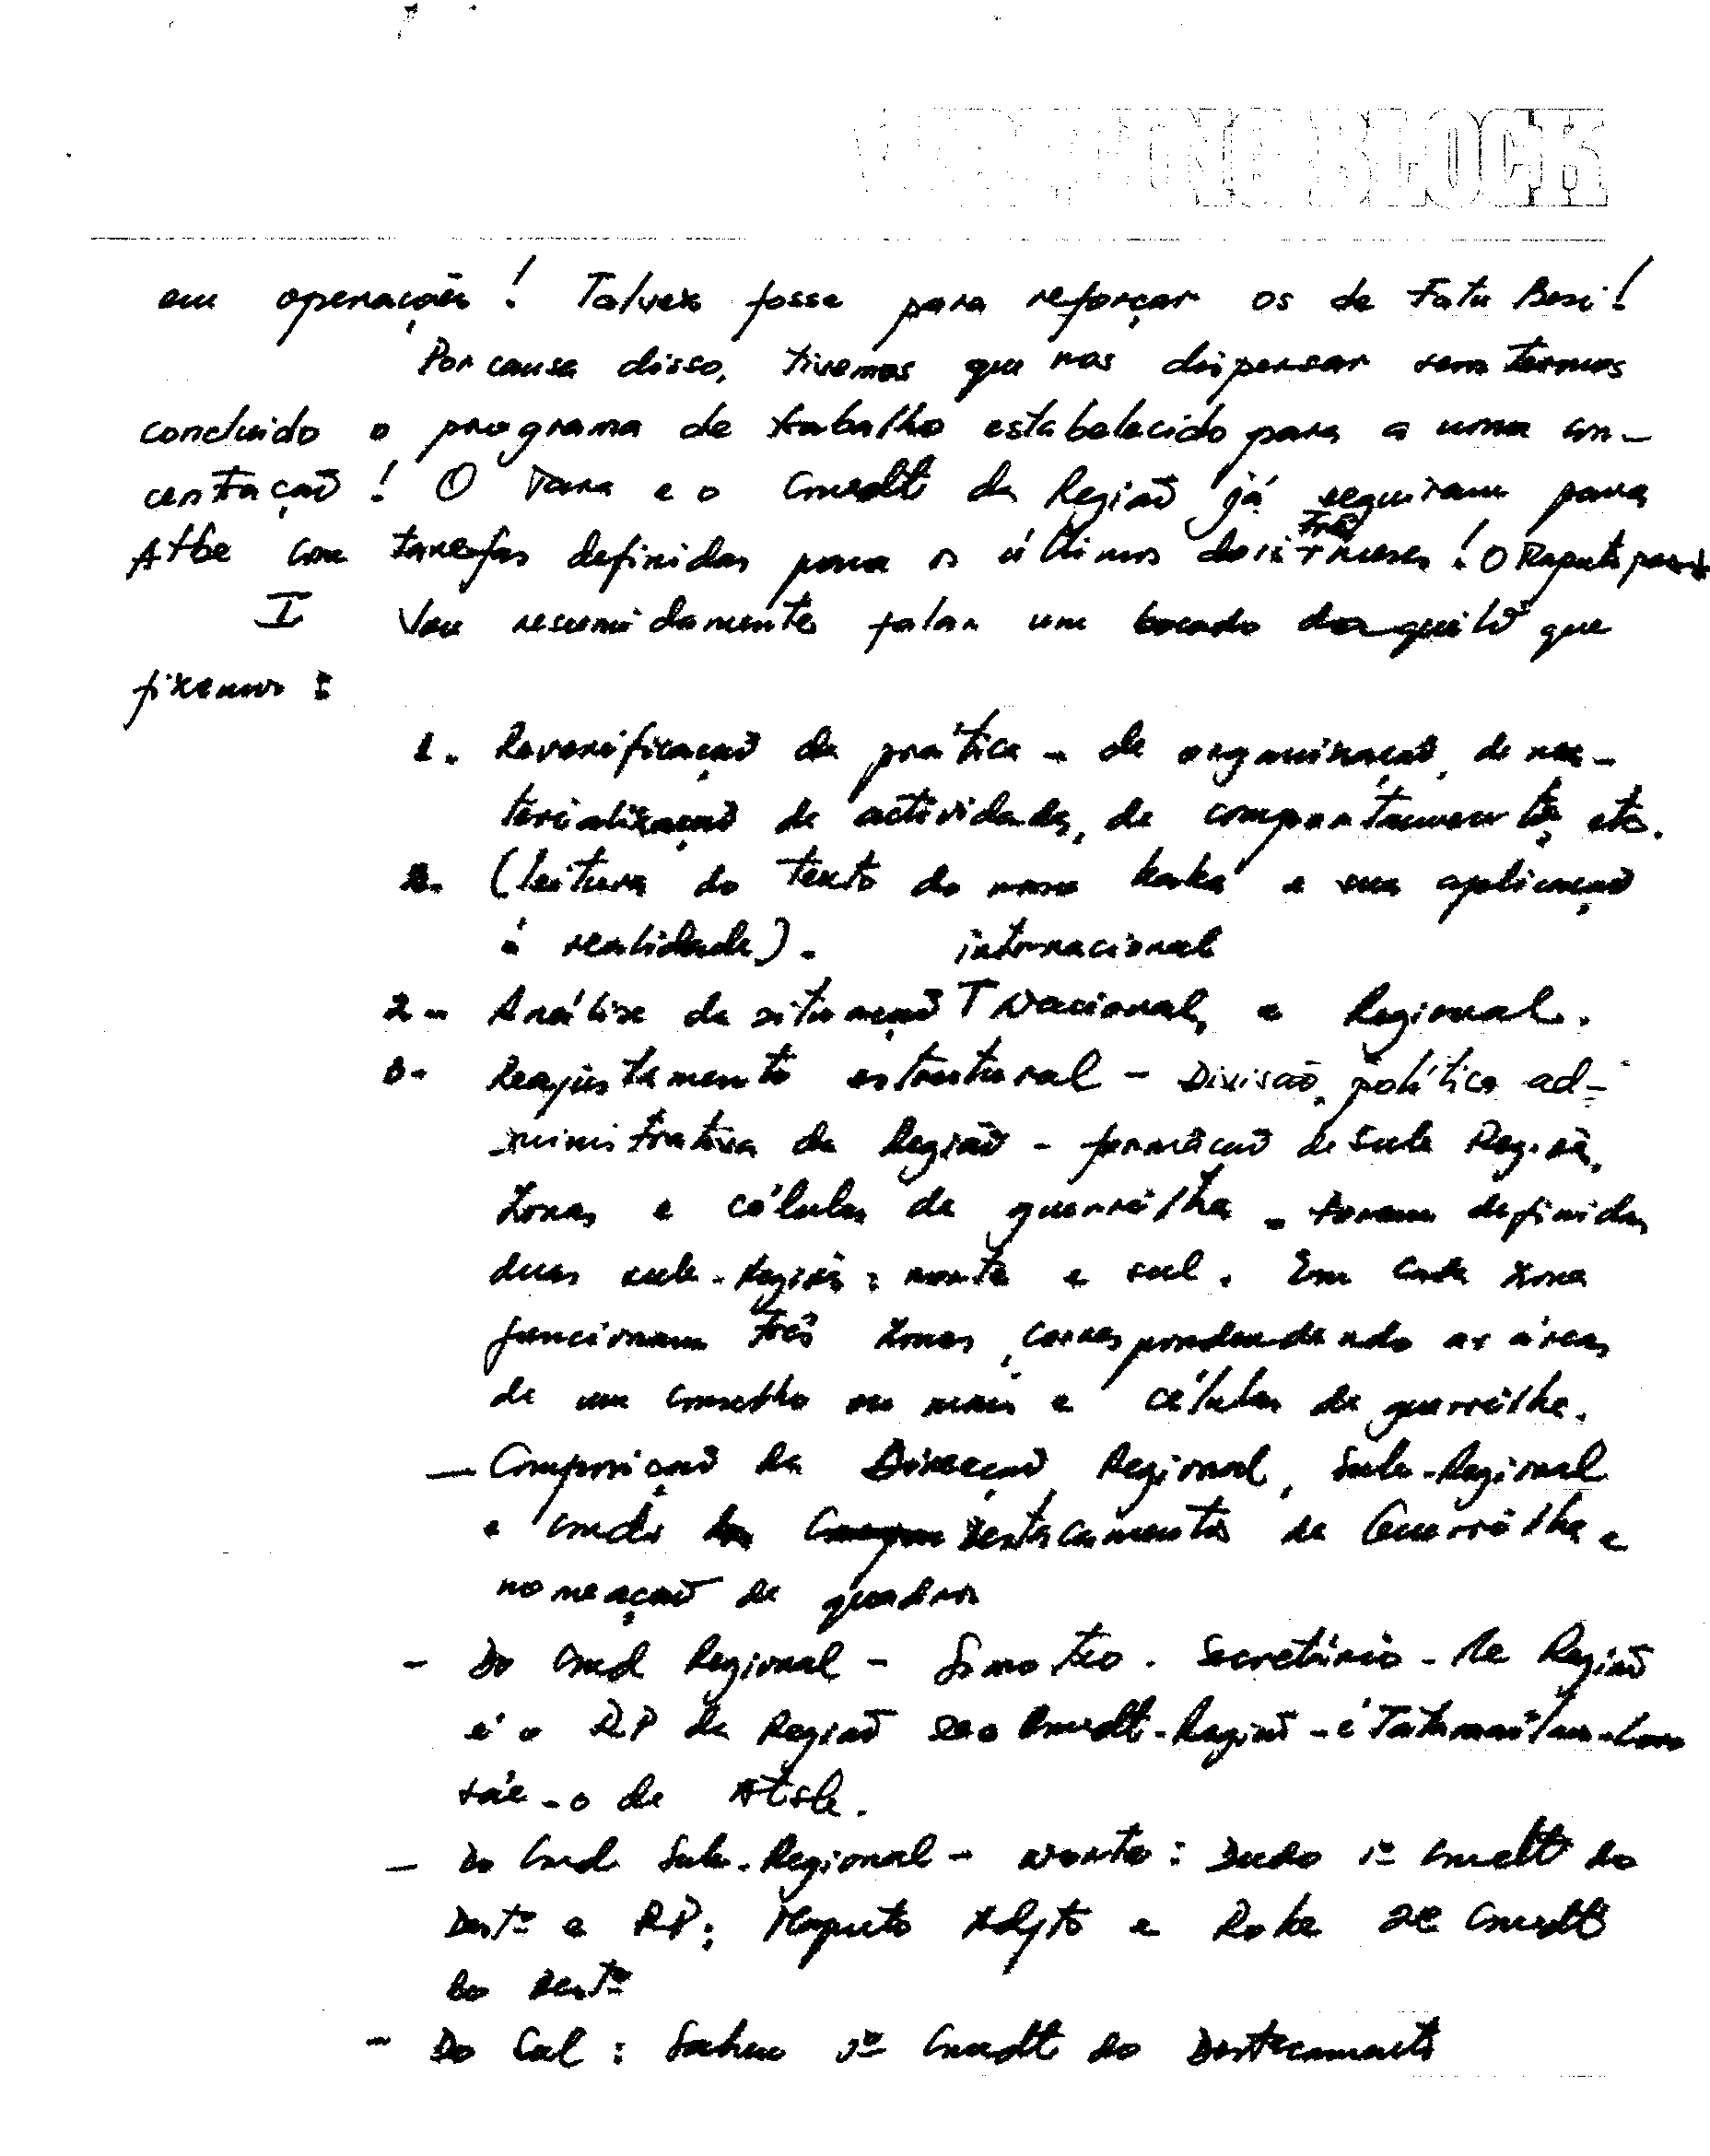 WRITING BLOCK
em operações! Talvez fosse para reforçar os de Fatu Besi!
Por causa disso, tivemos que nos dispersar sem termos
concluido o programa de trabalho estabelecido para a uma con-
centração! O Tara e o Cmdt da Região já seguiram para
Atbe com tarefas definidas para os últimos dois três meses! O Maputo
I Vou resumidamente falar um bocado daquilo que
fizemos:
1. Reverificação da prática - de organização, de ma-
terialização de actividades, de comportamento, etc.
(leitura do texto do mano Kaká e sua aplicação
à realidade). internacional
2- Análise da situação T Nacional, e Regional.
3- Reajustamento estrutural - Divisão, política ad-
ministrativa da Região - formação de Sub Região,
Zonas e células de guerrilha - Foram definidas
duas sub-Regiões: norte e sul. Em cada zona
funcionam três zonas, correspondendendo as áreas
de um conselho ou mais e células de guerrilha.
- Composição da Direcção Regional, Sub-Regional
e cmdos Destacamentos de Guerrilha e
nomeação de quadros
- Do Cmd Regional - Secretário - de Região
é o RP da Região e o Cmdt-Região - é
de Atsbe.
- Do Cmd Sub-Regional - Norte: Dudo 1º Cmdt do
Destº e RP; Maputo Adjto e Roke 2º Cmdt
do Destº
- Do Sul: Sabuc 1º Cmdt do Destacamento